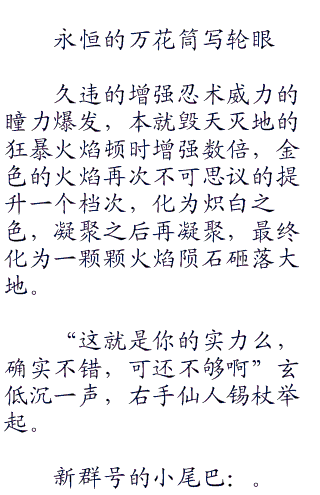 永恒的万花筒写轮眼
久违的增强忍术威力的
瞳力爆发，本就毁天灭地的
狂暴火焰顿时增强数倍，金
色的火焰再次不可思议的提
升一个档次，化为炽白之
色，凝聚之后再凝聚，最终
化为一颗颗火焰陨石砸落大
地。
“这就是你的实力么，
确实不错，可还不够啊”玄
低沉一声，右手仙人锡杖举
起。
新群号的小尾巴：。